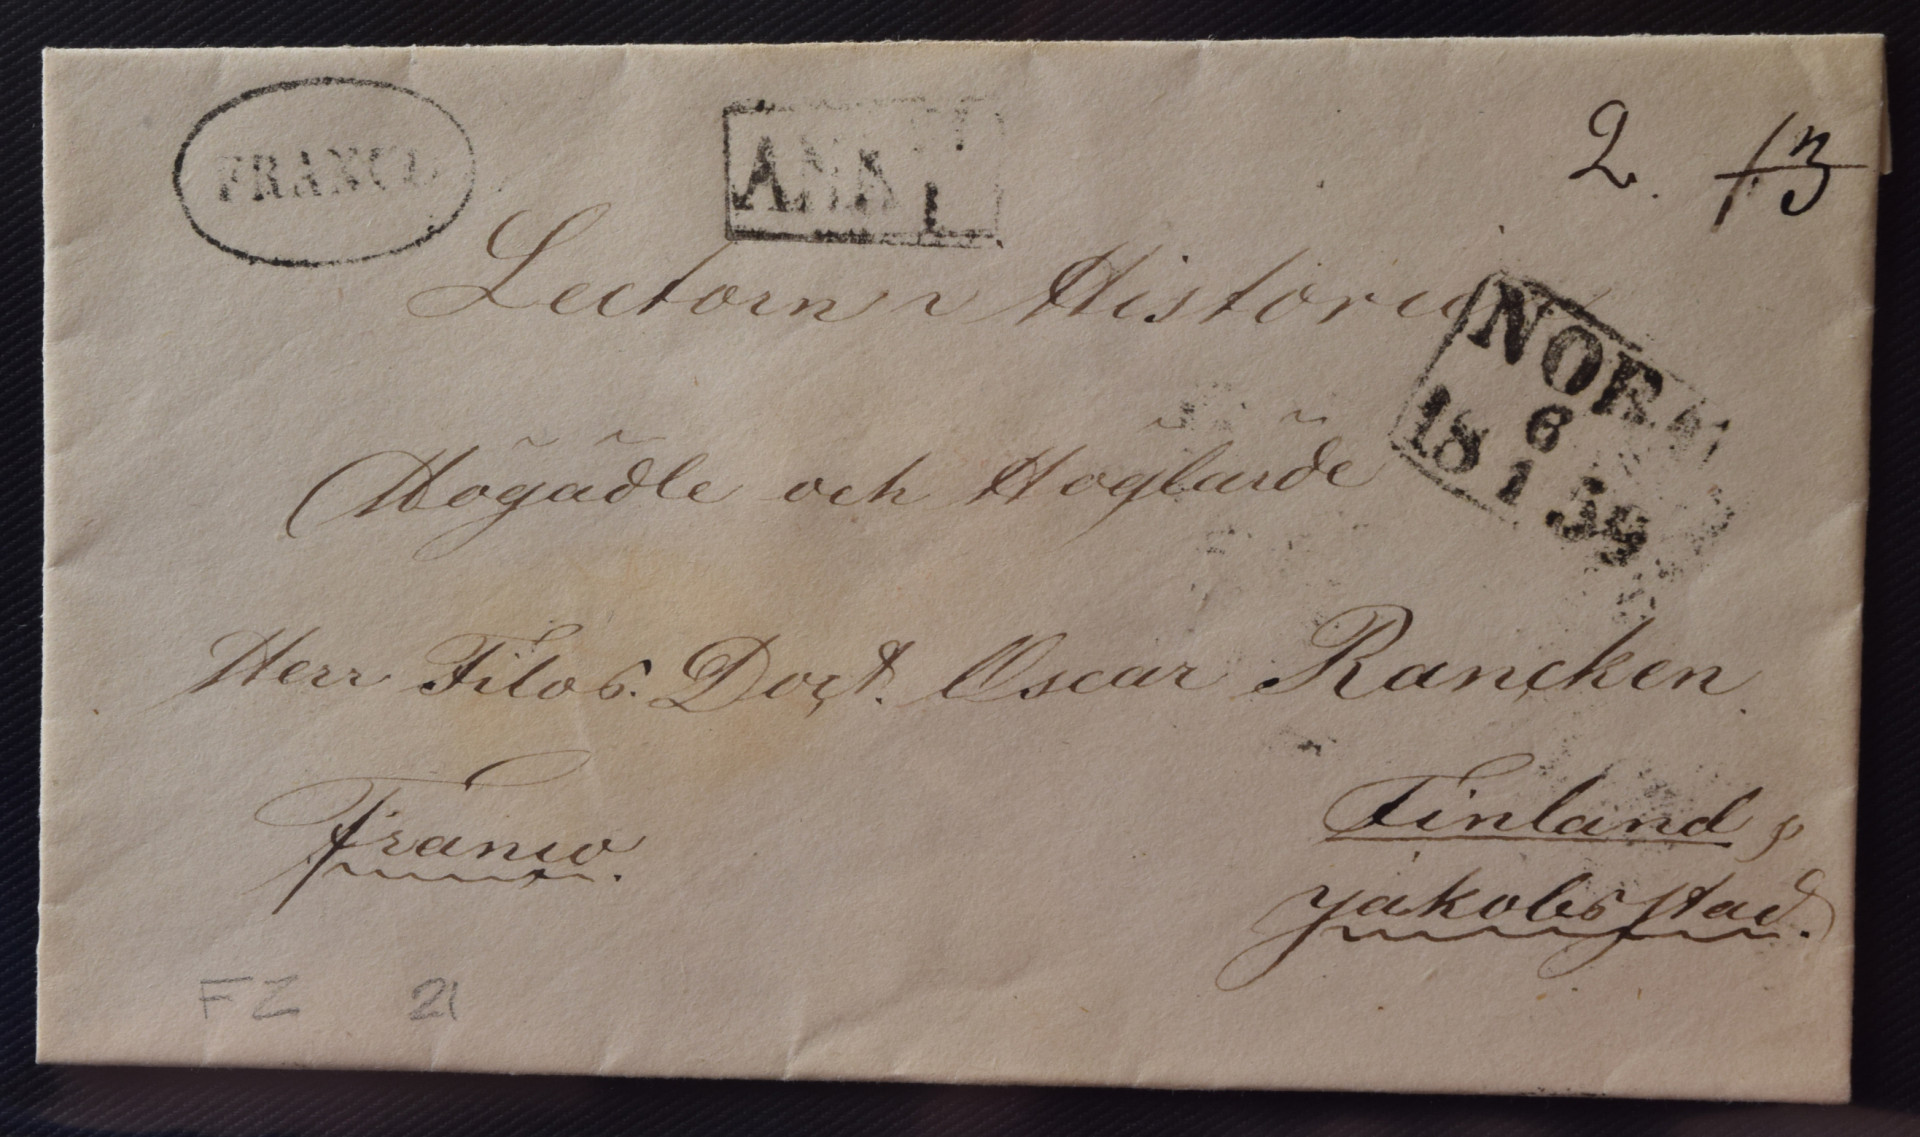 FRANCO
ANK
1
2. 13
Lectorn i Historia
Högädle och Höglärde
NORR
6
18 1 59
Herr Filos. Doct. Oscar Rancken.
Franco.
Finland,
Jakobsstad.
FZ 21